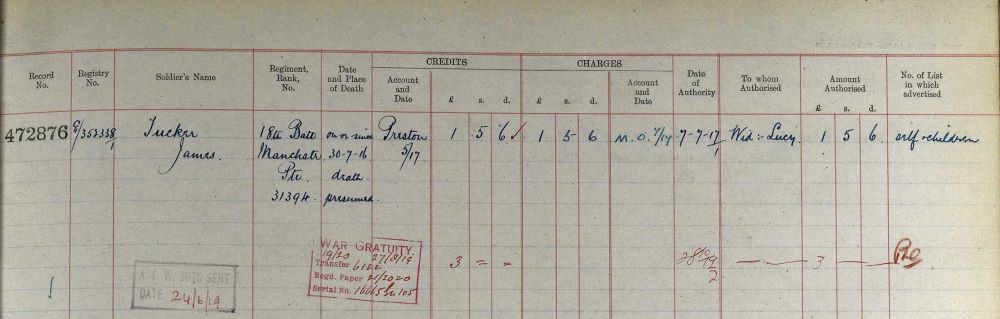 CREDITS CHARGES
Record No. Registry No. Soldier's Name Regiment, Rank, No. Date and Place of Death Account and Date £ s. d. £ s. d. Account and Date Date of Authority To whom Authorised Amount Authorised £ s. d. No. of List in which advertised
472876 Tucker 18th Batt on or since Preston 1 5 6 1 5 6 M.O. 7/17 7-7-17 Wid:- Lucy 1 5 6 self & children
James. Manchstr 30-7-16 5/17
Pte. death
31394. presumed.
WAR GRATUITY
19/20 27/8/19
Transfer
Regd. Paper
Serial No.
3 = = 3
A.F.W. SENT
DATE 24/6/19